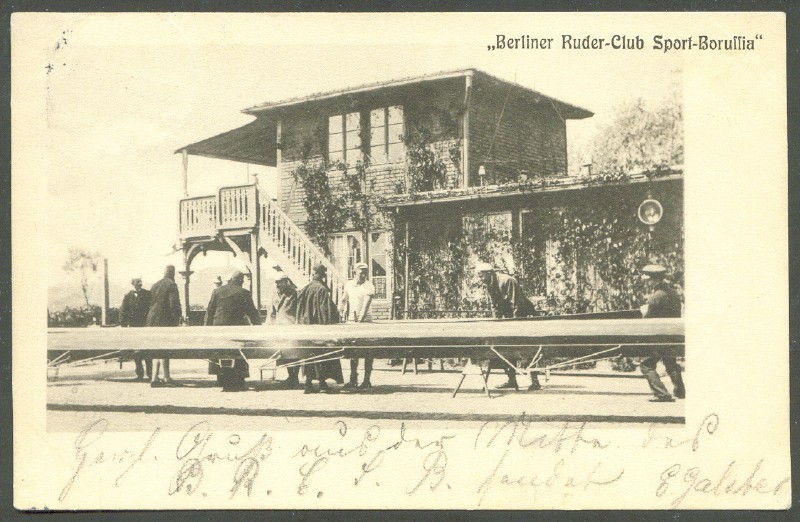 „Berliner Ruder-Club Sport-Borussia“
Herzl. Gruß aus der Mitte des
B. R. C. S. B. sendet E Galster